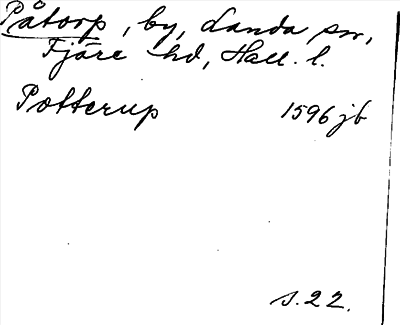 Påtorp, by, Landa sn,
Fjäre hd, Hall. l.
Potterup 1596 jb
s. 22.